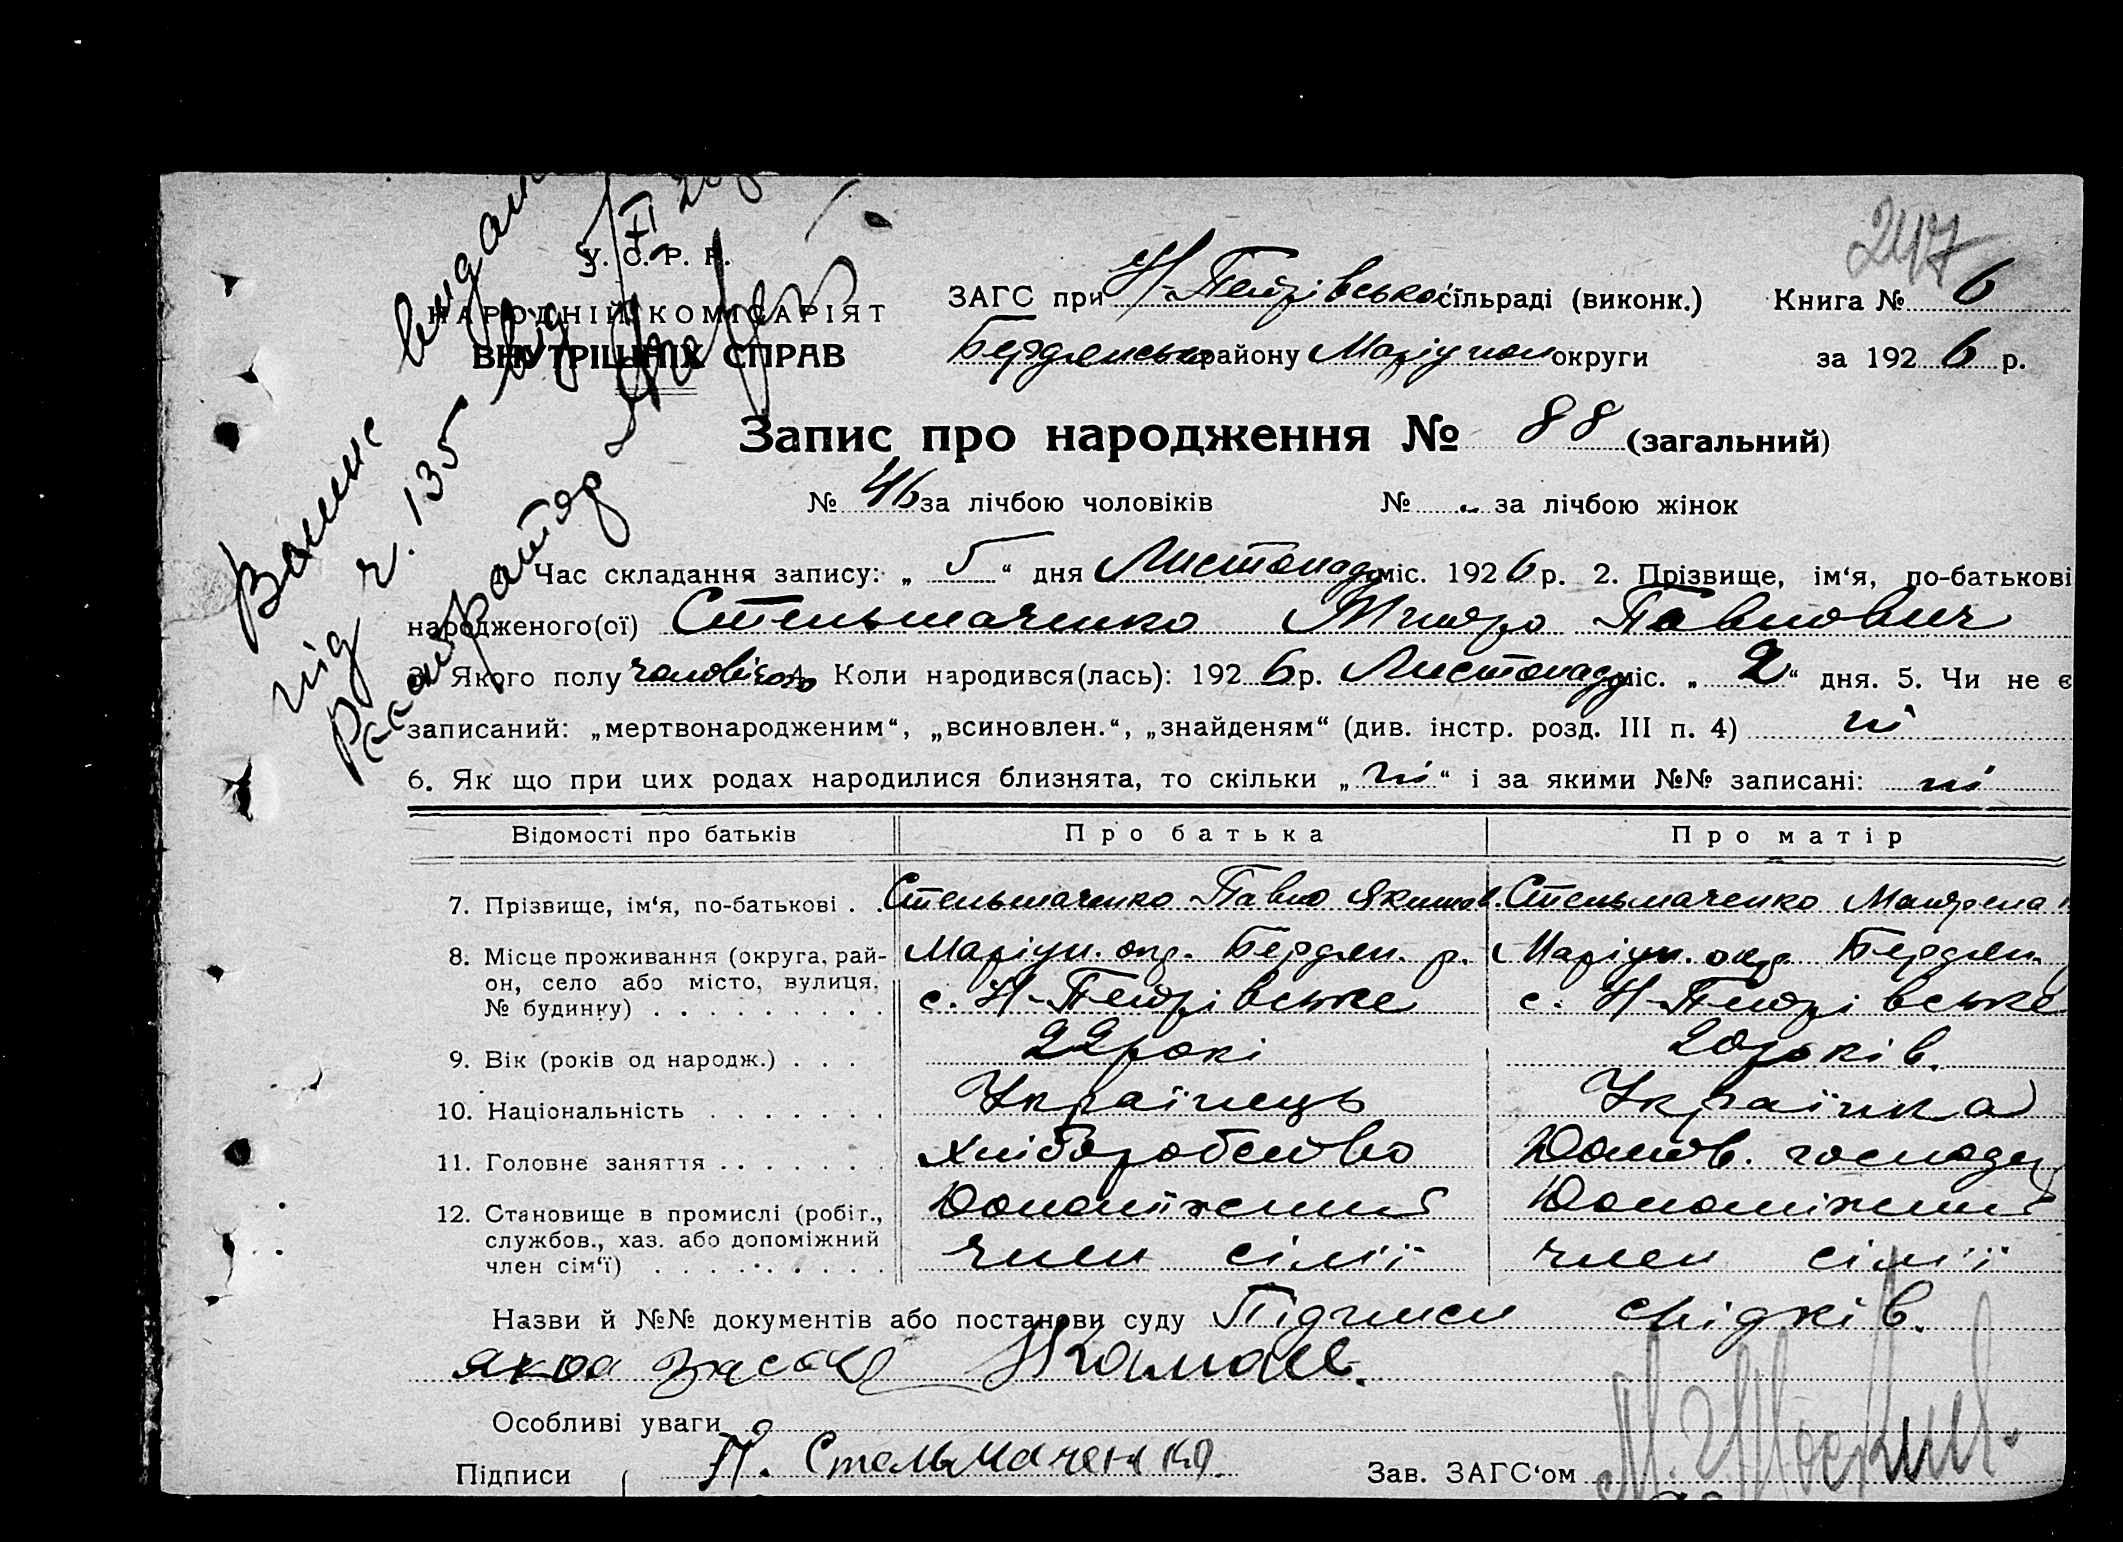 247
У. С. Р. Р.
НАРОДНІЙ КОМІСАРІЯТ
ВНУТРІШНІХ СПРАВ
Випис видан
під ч. 135 від
Реєстратор
ЗАГС при Н-Петрівської сільраді (виконк.) Книга № 6
Бердянськ району Маріупол округи за 1926 р.
Запис про народження № 88 (загальний)
№ 46 за лічбою чоловіків № „ за лічбою жінок
1. Час складання запису: „5“ дня Листопаду міс. 1926 р. 2. Прізвище, ім‘я, по-батькові
народженого(ої) Стельмаченко Павлович
3. Якого полу чоловічого 4. Коли народився(лась): 1926 р. Листопаду міс. „2“ дня. 5. Чи не є
записаний: „мертвонародженим“, „всиновлен.“, „знайденям“ (див. інстр. розд. III п. 4) ні
6. Як що при цих родах народилися близнята, то скільки „ні“ і за якими №№ записані: ні
Відомості про батьків Про батька Про матір
7. Прізвище, ім‘я, по-батькові . . Стельмаченко Павло Якимов. Стельмаченко
8. Місце проживання (округа, рай- Маріуп. окр. Бердян. р. Маріуп. окр. Бердян.
он, село або місто, вулиця, с. Н-Петрівське с. Н-Петрівське
№ будинку) . . . . . . . . .
9. Вік (років од народж.) . . . 22 рокі 20 років.
10. Національність . . . . . . . Українець Українка
11. Головне заняття . . . . . . . Хліборобство Домов. господар
12. Становище в промислі (робіт., Допоміжний Допоміжний
службов., хаз. або допоміжний член сімії член сімії
член сім‘ї) . . . . . . . . .
Назви й №№ документів або постанови суду Підписи свідків.
Особливі уваги
Підписи П. Стельмаченко. Зав. ЗАГС‘ом